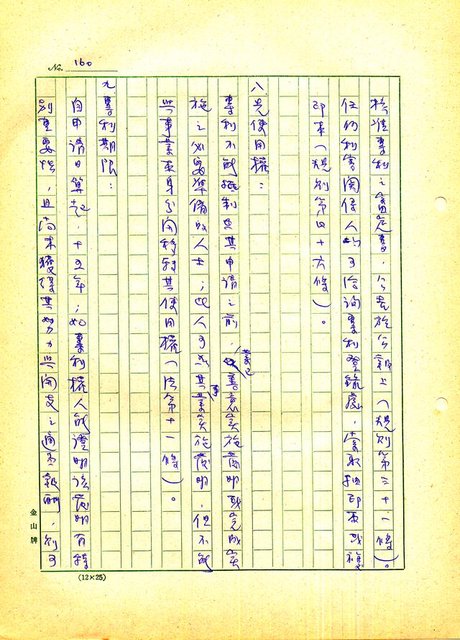 No. 160
核准專利之審定書，公告於公報上（規則第三十一條）。
任何利害關係人均可洽詢專利登錄處，索取抄印本或複
印本（規則第四十六條）。
八、先使用權：
專利不能抵制在其申請之前，業已善意實施發明或完成實
施之必要準備的人士；此人可為其事業實施發明，但不能
與事業本身分開移轉其使用權（法第十一條）。
九、專利期限：
自申請日算起，十五年；如專利權人能證明該發明有特
別重要性，且尚未獲得其努力與開支之適當報酬，則可
金山牌
(12×25)